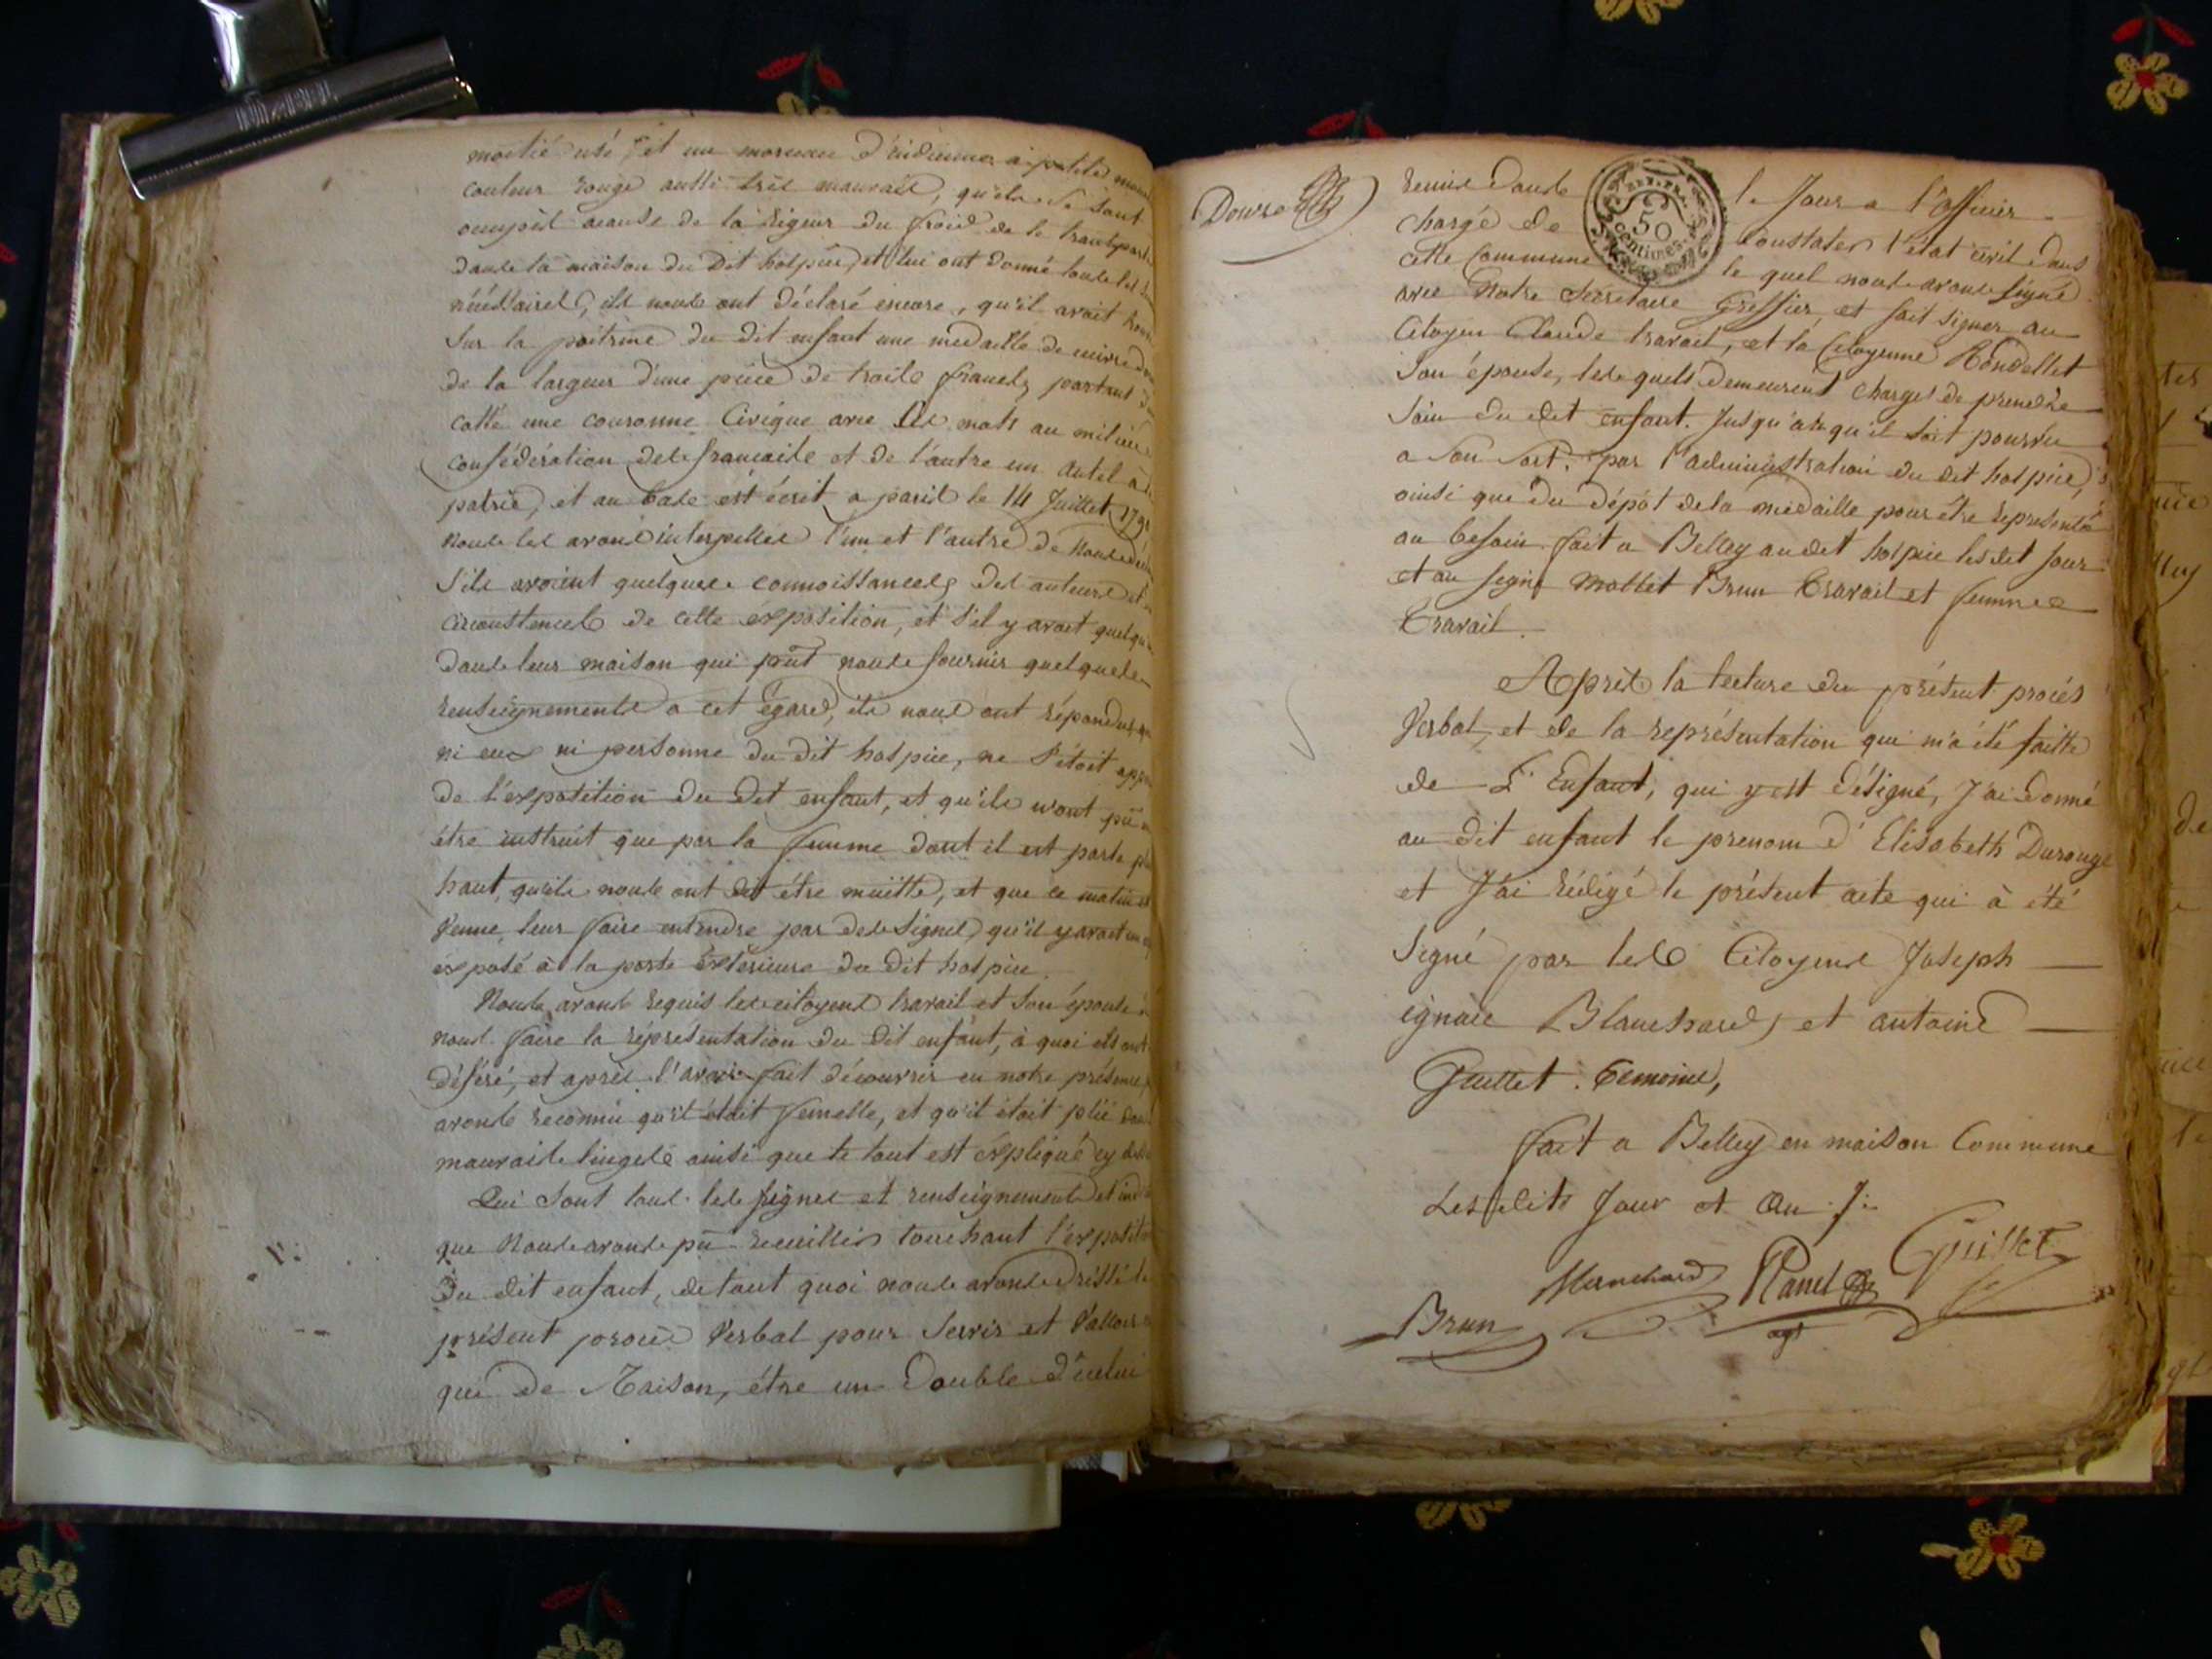 moitié usé, et un morceau d'indienne a petite
couleur rouge aussi très mauvais, qu'els se sont
occupés acause de la rigeur du froid de le transporter
dans la maison du dit hospice, et lui ont donné tous les
nécéssaires, ils nous ont déclaré encore, qu'il avait
sur la poitrine du dit enfant une medaille de cuivre
de la largeur d'une pièce de trois francs, portant
cotté une couronne Civique avec les mots au milieu
conféderation des francais et de l'autre un autel à
patrie, et au bas est écrit a paris le 14 Juillet
Nous les avons interpellés l'un et l'autre de nous
s'ils avoient quelques connoissances des auteurs et
circonstences de cette exposition, et s'il y avoit
dans leur maison qui put nous fournir quelques
renseignements a cet égard, ils nous ont répondus
ni eux ni personne du dit hospice, ne s'étoit
de l'exposition du dit enfant, et qu'ils n'ont pu
être instruit que par la femme dont il est parlé
haut, qu'ils nous ont dit être muitte, et que ce matin
venue leur faire entendre par des signes, qu'il y avait un
exposé à la porte éxterieure du dit hospice.
Nous avons requis les citoyens travail et son épouse
nous faire la réprésentation du dit enfant, à quoi ils ont
déféré, et après l'avoir fait découvrir en notre présence,
avons reconnu qu'il étoit femelle, et qu'il étoit plié
mauvais linges ainsi que le tout est éxpliqué cy
Qui sont tous les signes et renseignements et
que Nous avons pu recueillir touchant l'exposition
Du dit enfant, de tout quoi nous avons dressé le
présent procès Verbal pour servir et Valloir
que de Raison, être un Double d'icelui
Douze
remis dans le Jour a l'Officier
chargé de constater l'état civil dans
cette Commune le quel nous avons signé
avec Notre Secretaire Greffier, et fait signer au
Citoyen Claude travail, et la Citoyenne Rondellet
son épouse, les quels demeurent chargés de prendre
soin du dit enfant. Jusqu'à ce qu'il soit pourvu
a son sort. par l'administration du dit hospice,
ainsi que du dépot de la médaille pour être représenté
au besoin. fait a Belley au dit hospice les dit jour
et an signé Mottet Brun Travail et femme
Travail.
Après la lecture du présent procès
Verbal, et de la représentation qui m'a été faitte
de L'Enfant, qui y est désigné, J'ai donné
au dit enfant le prenom d'Elisabeth Durouge
et J'ai rédigé le présent acte qui à été
signé par les Citoyens Joseph
ignace Blanchard, et antoine
Guillet. temoins,
fait a Belley en maison Commune
Les dits Jour et An
Guillet
Blanchard
Brun
agt
REP. FRA.
50
centimes.